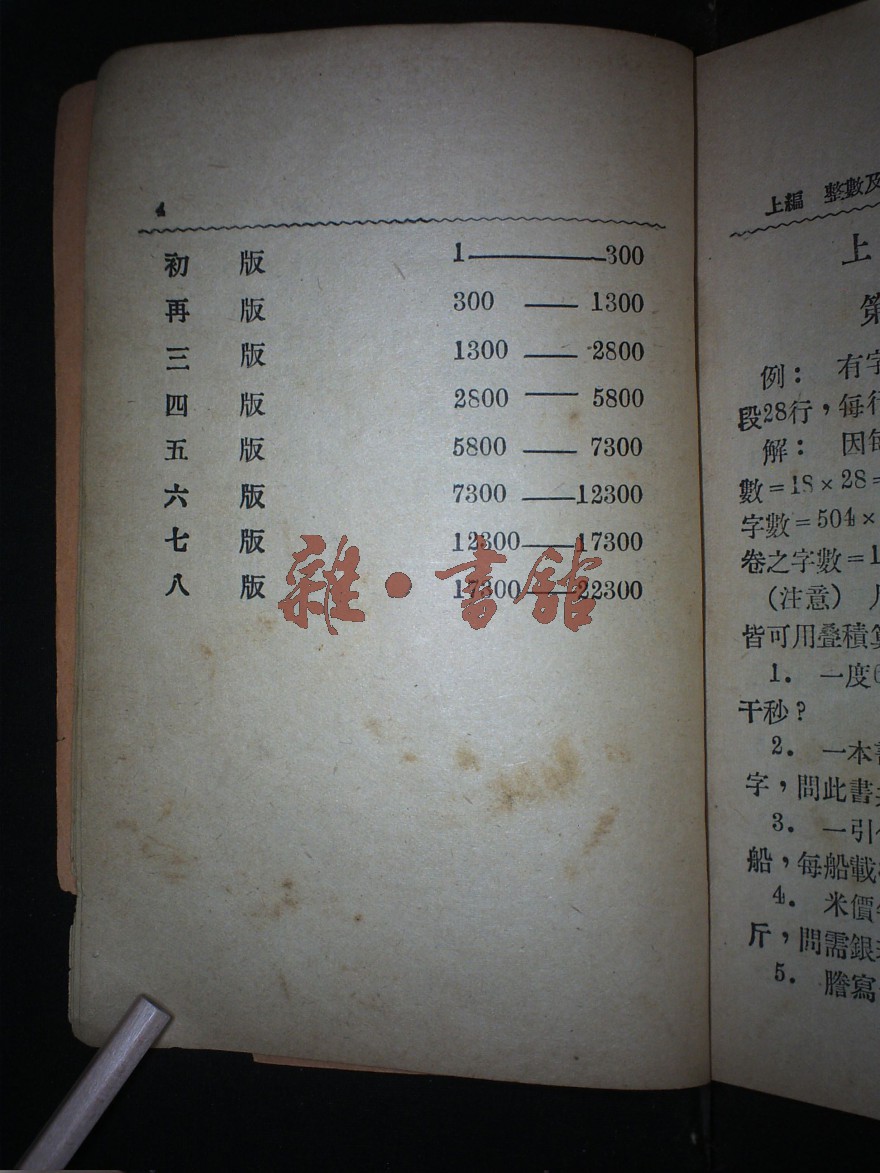 4
初 版 1——300
再 版 300——1300
三 版 1300——2800
四 版 2800——5800
五 版 5800——7300
六 版 7300——12300
七 版 12300——17300
八 版 17300——22300
雜·書館
上編 整數及
上
第
例： 有字
段28行，每行
解： 因每
數=18×28=
字數=504×
卷之字數=1
(注意)
皆可用叠積算
1. 一度6
干秒？
2. 一本書
字，問此書
3. 一引
船，每船載
4. 米價
斤，問需銀
5. 謄寫